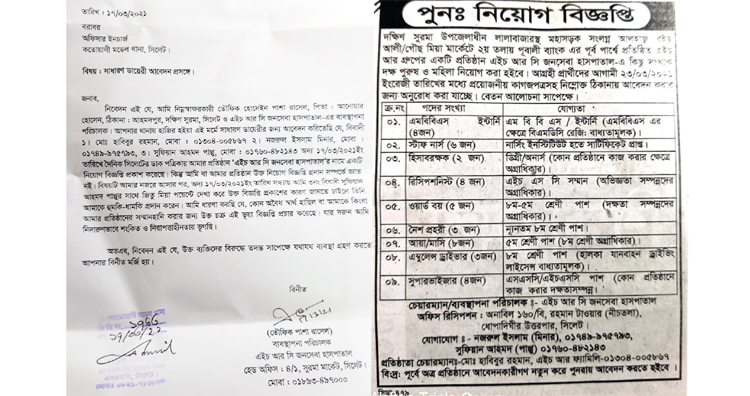 তারিখ : ১৭/০৩/২০২১
বরাবর
অফিসার ইনচার্জ
কতোয়ালী মডেল থানা, সিলেট।
বিষয় : সাধারণ ডায়েরী আবেদন প্রসঙ্গে।
জনাব,
নিবেদন এই যে, আমি নিম্নস্বাক্ষরকারী তৌফিক হোসেইন পাশা রাসেল, পিতা : আনোয়ার
হোসেন, ঠিকানা : আহমদপুর, দক্ষিণ সুরমা, সিলেট ও এইচ আর সি জনসেবা হাসপাতাল-এর ব্যবস্থাপনা
পরিচালক। আপনার থানায় হাজির হইয়া এই মর্মে সাধারণ ডায়েরীর জন্য আবেদন করিতেছি যে, বিবাদী
১। মোঃ হাবিবুর রহমান, মোবা : ০১৩০৪-০০৫৮৬৭ ২। নজরুল ইসলাম মিনার, মোবা :
০১৭৪৯-৯৭৫৭৯৩, ৩। সুফিয়ান আহমদ পাপ্পু, মোবা : ০১৭৬০-৪৮২১৪৩ অদ্য ১৭/০৩/২০২১ইং
তারিখে দৈনিক সিলেটের ডাক পত্রিকায় আমার প্রতিষ্ঠান 'এইচ আর সি জনসেবা হাসপাতাল'র নামে একটি
নিয়োগ বিজ্ঞপ্তি প্রকাশ করেছে। কিন্তু আমি বা আমার প্রতিষ্ঠান উক্ত নিয়োগ বিজ্ঞপ্তি প্রদান সম্পর্কে জ্ঞাত
নই। বিষয়টি আমার নজরে আসার পর, অদ্য ১৭/০৩/২০২১ইং তারিখ সন্ধ্যায় আমি ৩নং বিবাদী সুফিয়ান
আহমদ পাপ্পুর সাথে জিতু মিয়া পয়েন্টে দেখা করে উক্ত বিজ্ঞপ্তি প্রকাশের কারণ জানতে চাইলে তিনি
আমাকে হুমকি-ধামকি প্রদান করেন। আমি ধারণা করছি যে, কোন অবৈধ স্বার্থ হাছিল বা আমাকে কিংবা
আমার প্রতিষ্ঠানের সম্মানহানি করার জন্য উক্ত চক্র এই ভূয়া বিজ্ঞপ্তি প্রচার করেছে। যার দরুন আমি
নিদারুণভাবে শংকিত ও নিরাপত্তাহীনতায় ভূগছি।
অতএব, নিবেদন এই যে, উক্ত ব্যক্তিদের বিরুদ্ধে তদন্ত সাপেক্ষে যথাযথ ব্যবস্থা গ্রহণ করতে
আপনার বিনীত মর্জি হয়।
বিনীত
(তৌফিক পাশা রাসেল)
ব্যবস্থাপনা পরিচালক
এইচ আর সি জনসেবা হাসপাতাল
হেড অফিস : ৪/১, সুরমা মার্কেট, সিলেট।
মোবা : ০১৮৯৩-৪৯৭০০০
পুনঃ নিয়োগ বিজ্ঞপ্তি
দক্ষিণ সুরমা উপজেলাধীন লালাবাজারস্থ মহাসড়ক সংলগ্ন আলহাজ্ব রইছ
আলী/গৌছ মিয়া মার্কেটে ২য় তলায় পূবালী ব্যাংক এর পূর্ব পার্শ্বে প্রতিষ্ঠিত এইচ
আর গ্রুপের একটি প্রতিষ্ঠান এইচ আর সি জনসেবা হাসপাতাল-এ কিছু সংখ্যক
দক্ষ পুরুষ ও মহিলা নিয়োগ করা হইবে। আগ্রহী প্রার্থীদের আগামী ২৩/০৩/২০২১
ইংরেজী তারিখের মধ্যে প্রয়োজনীয় কাগজপত্রসহ নিম্নোক্ত ঠিকানায় আবেদন করার
জন্য অনুরোধ করা যাচ্ছে। বেতন আলোচনা সাপেক্ষে।
ক্র.নং পদের সংখ্যা যোগ্যতা
০১. এমবিবিএস ইন্টার্নি (৪জন) এম বি বি এস / ইন্টার্নি (এমবিবিএস এর ক্ষেত্রে বিএমডিসি রেজিঃ বাধ্যতামূলক)।
০২. স্টাফ নার্স (৬ জন) নার্সিং ইন্সটিটিউট হতে সার্টিফিকেট প্রাপ্ত।
০৩. হিসাবরক্ষক (২ জন) ডিগ্রী/অনার্স (কোন প্রতিষ্ঠানে কাজ করার ক্ষেত্রে অগ্রাধিকার)।
০৪. রিসিপশনিস্ট (৪ জন) এইচ এস সি সম্মান (অভিজ্ঞতা সম্পন্নদের অগ্রাধিকার)।
০৫. ওয়ার্ড বয় (৫ জন) ৮ম-৫ম শ্রেণী পাশ (দক্ষতা সম্পন্নদের অগ্রাধিকার)।
০৬. নৈশ প্রহরী (৩ জন) ন্যূনতম ৮ম শ্রেণী পাশ।
০৭. আয়া/মাসি (৮জন) ৫ম শ্রেণী পাশ (৮ম শ্রেণী অগ্রাধিকার)।
০৮. এম্বুলেন্স ড্রাইভার (৩জন) ৮ম শ্রেণী পাশ (হালকা যানবাহন ড্রাইভিং লাইসেন্স বাধ্যতামূলক)।
০৯. সুপারভাইজার (৪জন) এসএসসি/এইচএসসি পাশ (কোন প্রতিষ্ঠানে কাজ করার দক্ষতাসম্পন্ন)।
চেয়ারম্যান/ব্যবস্থাপনা পরিচালক:- এইচ আর সি জনসেবা হাসপাতাল
অফিস রিসিপশন:- অনাবিল ১৬০/বি, রহমান টাওয়ার (নীচতলা),
ধোপাদিঘীর উত্তরপার, সিলেট।
যোগাযোগ :- নজরুল ইসলাম (মিনার), ০১৭৪৯-৯৭৫৭৯৩,
সুফিয়ান আহমদ (পাপ্পু) ০১৭৬০-৪৮২১৪৩
প্রতিষ্ঠাতা চেয়ারম্যান:- মোঃ হাবিবুর রহমান, এইচ আর ফ্যামিলি-০১৩০৪-০০৫৮৬৭
বি:দ্র: পূর্বে অত্র প্রতিষ্ঠানে আবেদনকারীগণ নতুন করে পুনরায় আবেদন করতে হইবে।